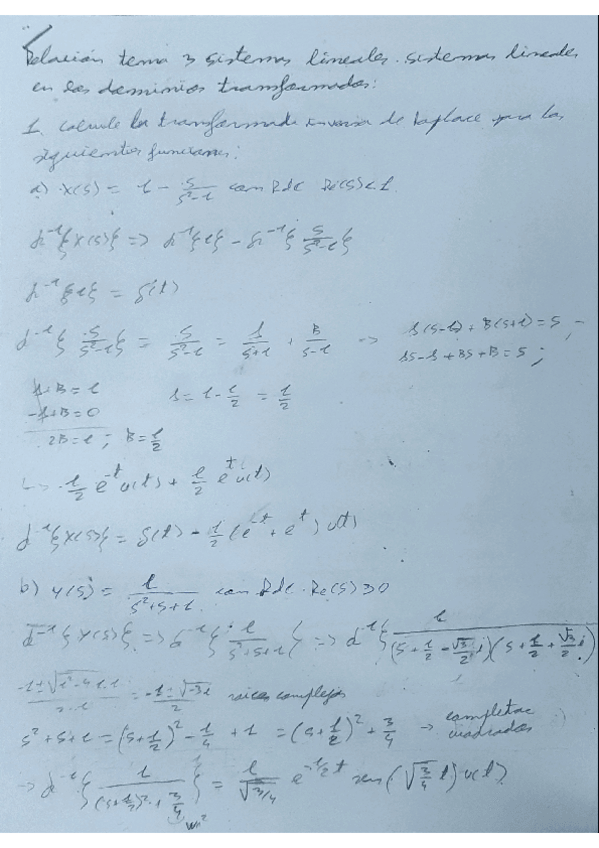 Relación tema 3 sistemas lineales. sistemas lineales
en los dominios transformados:
1. calcule la transformada inversa de Laplace para las
siguientes funciones:
a) X(s) = 1 - s/(s²-1) con Rdc Re(s)<1.
L⁻¹{X(s)} => L⁻¹{1} - L⁻¹{s/(s²-1)}
L⁻¹{1} = δ(t)
L⁻¹{s/(s²-1)} = s/(s²-1) = A/(s+1) + B/(s-1) => A(s-1) + B(s+1) = s;
As - A + Bs + B = s;
A+B = 1
-A+B = 0
2B = 1; B = 1/2
A = 1 - 1/2 = 1/2
↳ 1/2 e^-t u(t) + 1/2 e^t u(t)
L⁻¹{X(s)} = δ(t) - 1/2 (e^-t + e^t) u(t)
b) Y(s) = 1/(s²+s+1) con Rdc. Re(s) ≥ 0
L⁻¹{Y(s)} => L⁻¹{1/(s²+s+1)} => L⁻¹{1/((s+1/2-√3/2 i)(s+1/2+√3/2 i))
(-1±√(1²-4·1·1))/(2·1) = (-1±√-3)/2 raices complejas
s²+s+1 = (s+1/2)² - 1/4 + 1 = (s+1/2)² + 3/4 → completar
cuadrados
→ L⁻¹{1/((s+1/2)²+3/4)} = 1/√(3/4) e^(-1/2 t) sen(√(3/4) t) u(t)
Wn²